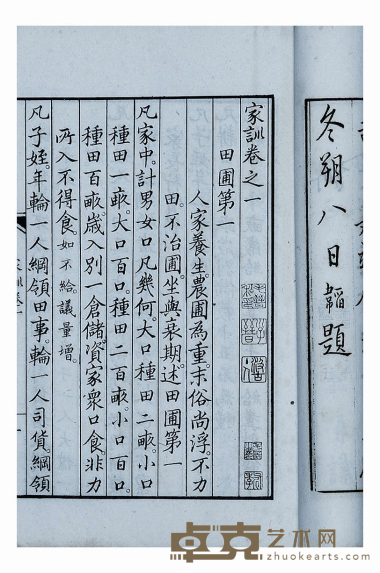 冬朔八日韜題
家訓卷之一
田圃第一
人家養生。農圃為重。末俗尚浮。不力
田。不治圃。坐與衰期。述田圃第一
凡家中。計男女口凡幾何。大口種田二畝。小口
種田一畝。大口百口。種田二百畝。小口百口。
種田百畝。歲入別一倉儲。資家眾口食。非力
所入不得食。如不給。議量增。
凡子姪。年輪一人綱領田事。輪一人司貨。綱領
卓克艺术网
zhuokearts.com